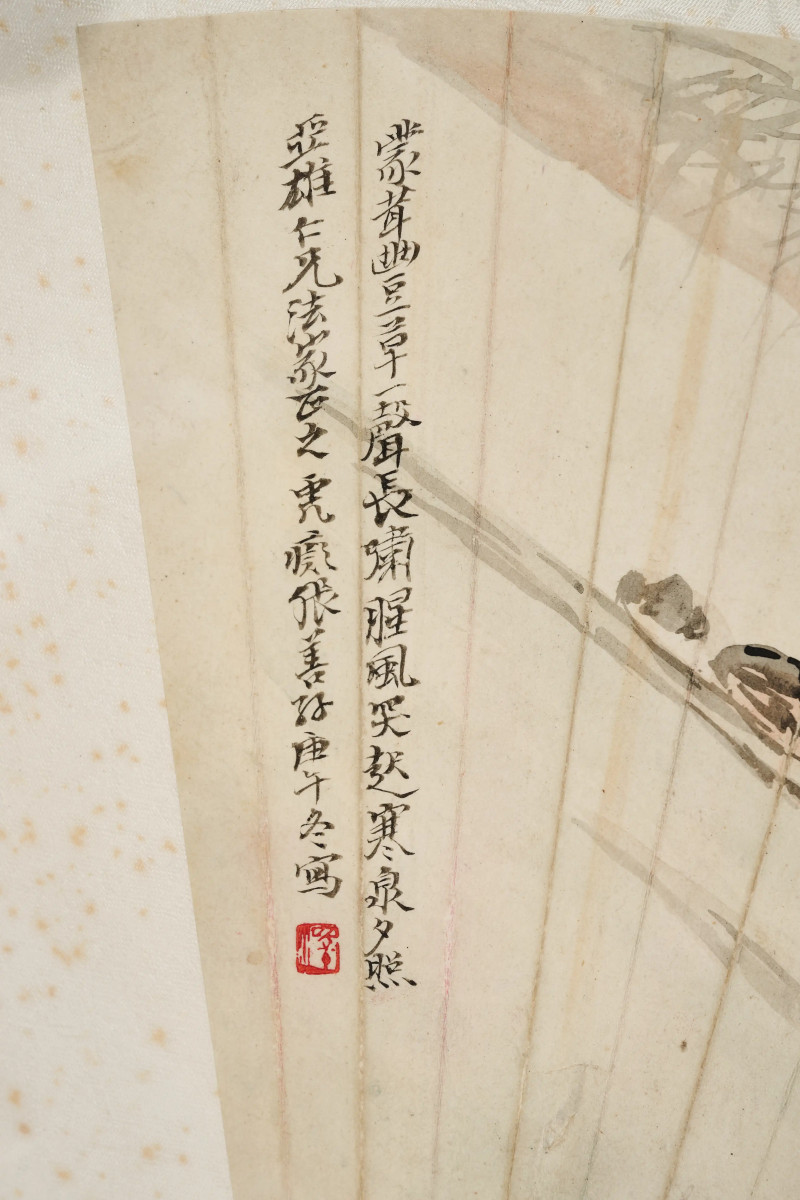 蒙茸豐草一聲長嘯腥風突起寒泉夕照
亞雄仁兄法家正之 虎癡張善孖庚午冬寫
澤